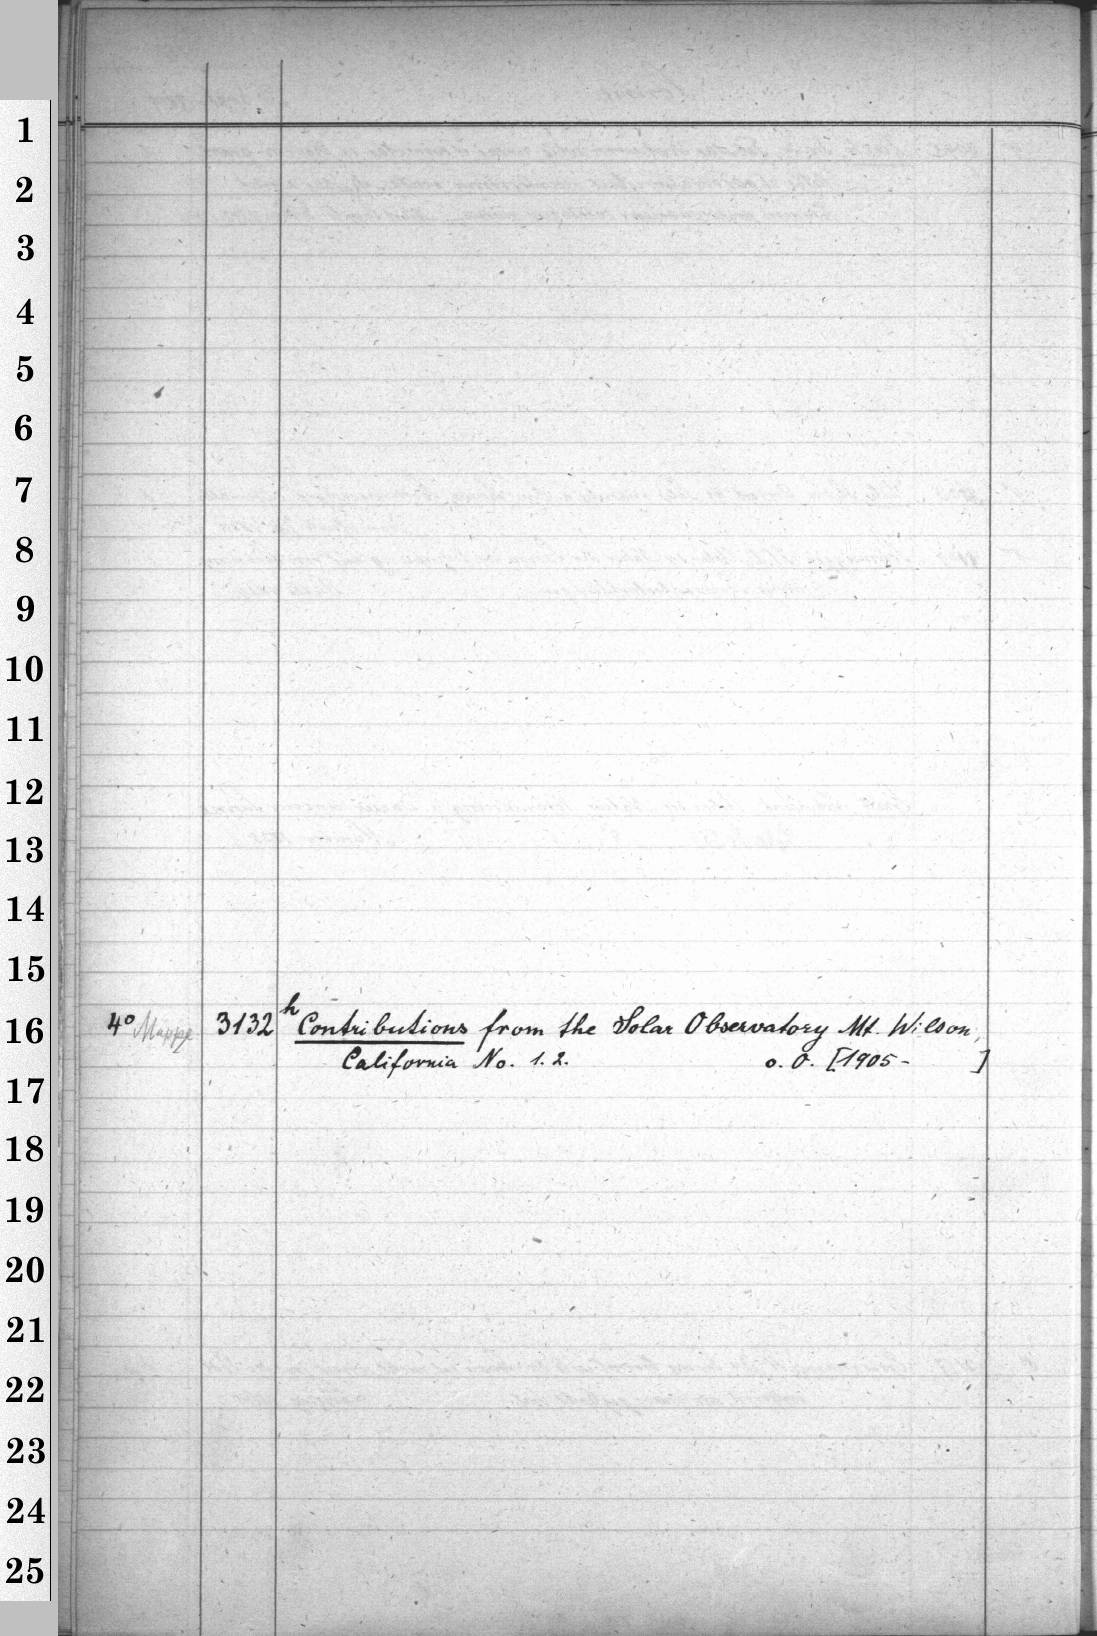 1
2
3
4
5
6
7
8
9
10
11
12
13
14
15
16
4° Mappe 3132 h Contributions from the Solar Observatory Mt. Wilson,
California No. 1. 2. o. O. [1905 - ]
17
18
19
20
21
22
23
24
25